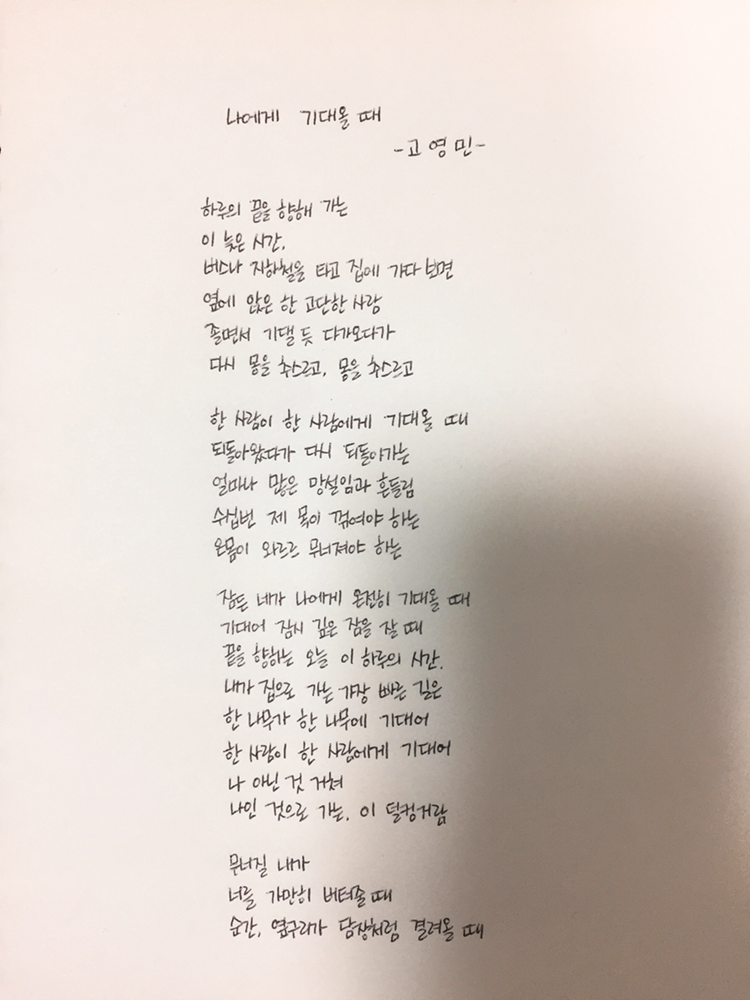 나에게 기대올 때
-고영민-
하루의 끝을 향해 가는
이 늦은 시간,
버스나 지하철을 타고 집에 가다 보면
옆에 앉은 한 고단한 사람
졸면서 기댈 듯 다가오다가
다시 몸을 추스르고, 몸을 추스르고
한 사람이 한 사람에게 기대올 때
되돌아왔다가 다시 되돌아가는
얼마나 많은 망설임과 흔들림
수십번 제 목이 꺾여야 하는
온몸이 와르르 무너져야 하는
잠든 네가 나에게 온전히 기대올 때
기대어 잠시 깊은 잠을 잘 때
끝을 향하는 오늘 이 하루의 시간,
내가 집으로 가는 가장 빠른 길은
한 나무가 한 나무에 기대어
한 사람이 한 사람에게 기대어
나 아닌 것 거쳐
나인 것으로 가는, 이 덜컹거림
무너질 내가
너를 가만히 버텨줄 때
순간, 옆구리가 담장처럼 결려올 때